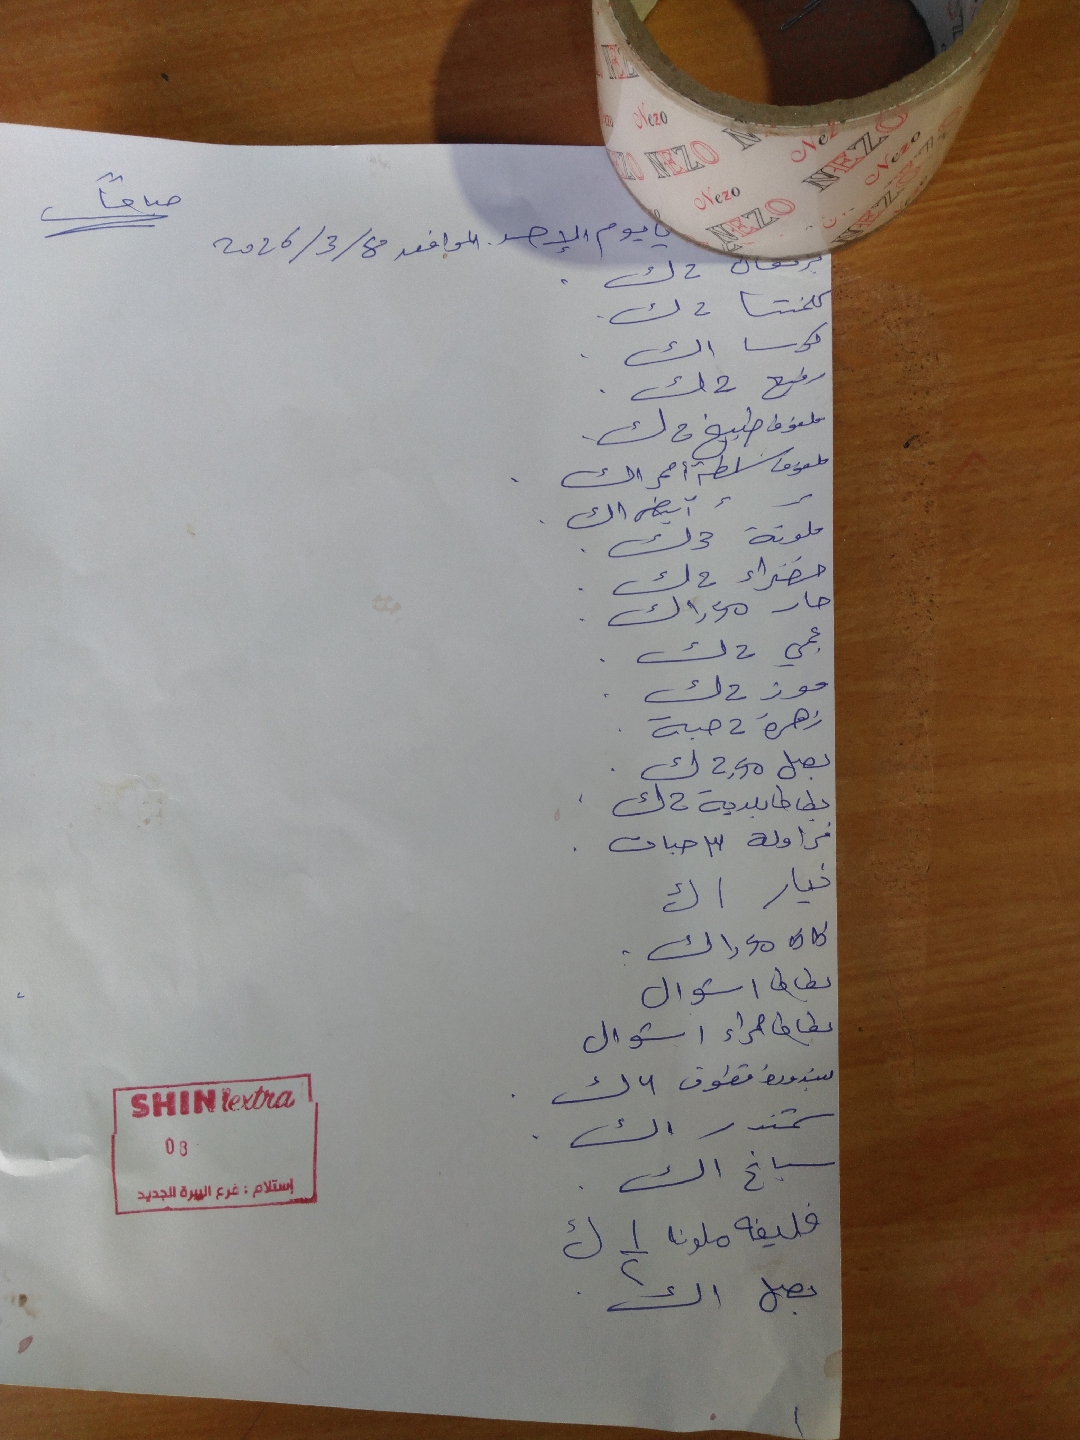 NEZO Nezo
صباحاً
يوم الإحد الموافق 2026/3/8
برتقال 2ك
كلمنتينا 2ك
كوسا 1ك
رفيع 2ك
ملفوف طبيخ 2ك
ملفوف سلطة أحمر 1ك
أبيض 1ك
ملونة 3ك
خضراء 2ك
حار 1,50ك
عجمي 2ك
موز 2ك
زهرة 2 حبة
بصل 2,50ك
بطاطا بلدية 2ك
فراولة ٣ حبات
خيار 1ك
كاكا 1,50ك
بطاطا 1 شوال
بطاطا حمراء 1 شوال
بندورة قطوف ك
شمندر 1ك
سبانخ 1ك
فليفه ملونه 1/٢ ك
بصل 1ك
SHINI extra
08
إستلام : فرع البيرة الجديد